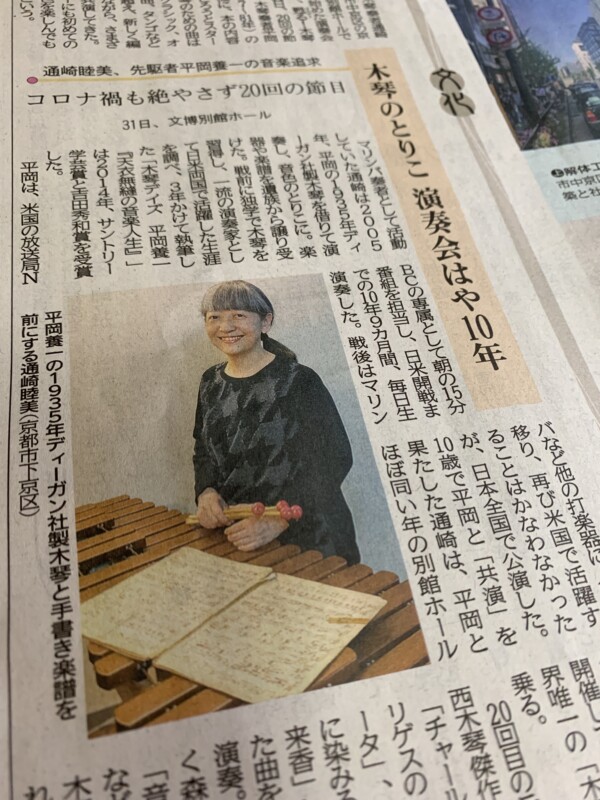 文化
木琴のとりこ 演奏会はや10年
通崎睦美、先駆者平岡養一の音楽追求
コロナ禍も絶やさず20回の節目
31日、文博別館ホール
マリンバ奏者として活動
していた通崎は2005
年、平岡の1935年ディ
ーガン社製木琴を借りて演
奏し、音色のとりこに。楽
器や楽譜を遺族から譲り受
けた。戦前に独学で木琴を
習得し、一流の演奏家とし
て日米両国で活躍した生涯
を調べ、3年かけて執筆し
た「木琴デイズ 平岡養一
『天衣無縫の音楽人生』」
は2014年、サントリー
学芸賞と吉田秀和賞を受賞
した。
平岡は、米国の放送局N
BCの専属として朝の15分
番組を担当し、日米開戦ま
での10年9カ月間、毎日生
演奏した。戦後はマリン
バなど他の打楽器に
移り、再び米国で活躍す
ることはかなわなかった
が、日本全国で公演した。
10歳で平岡と「共演」を
果たした通崎は、平岡と
ほぼ同い年の別館ホール
平岡養一の1935年ディーガン社製木琴と手書き楽譜を
前にする通崎睦美(京都市下京区)
開催し
界唯一の「木
乗る。
20回目の
西木琴傑作
「チャール
リゲスの
ータ」、
に染みる
来香」
た曲を
演奏。
く森
「音
など
木
れ
上解体工
市中京区
築と社